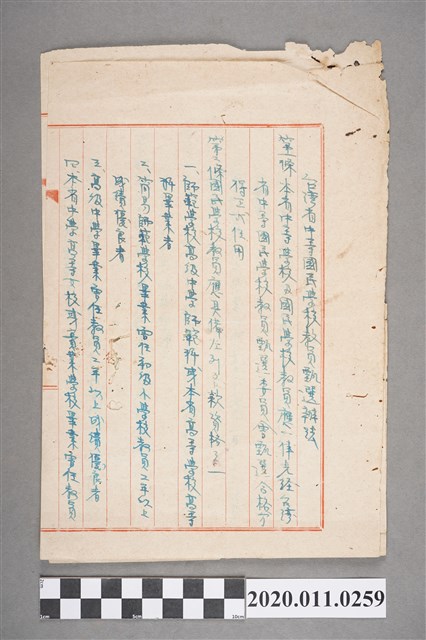 台湾省中等國民學校教員甄選辦法
第一條本省中等學校及國民學校教員應一律先經台湾
省中等國民學校教員甄選委員會甄選合格方
得正式任用
第二條國民學校教員應具備左列各款資格之一
一、師範學校高級中學師範科或本省高等學校高等
科畢業者
二、簡易師範學校畢業曾任初級小學校教員二年以上
成績優良者
三、高級中學畢業曾任教員二年以上成績優良者
四本省中學高等女校或實業學校畢業曾任教員
1cm 5cm 10cm
2020.011.0259